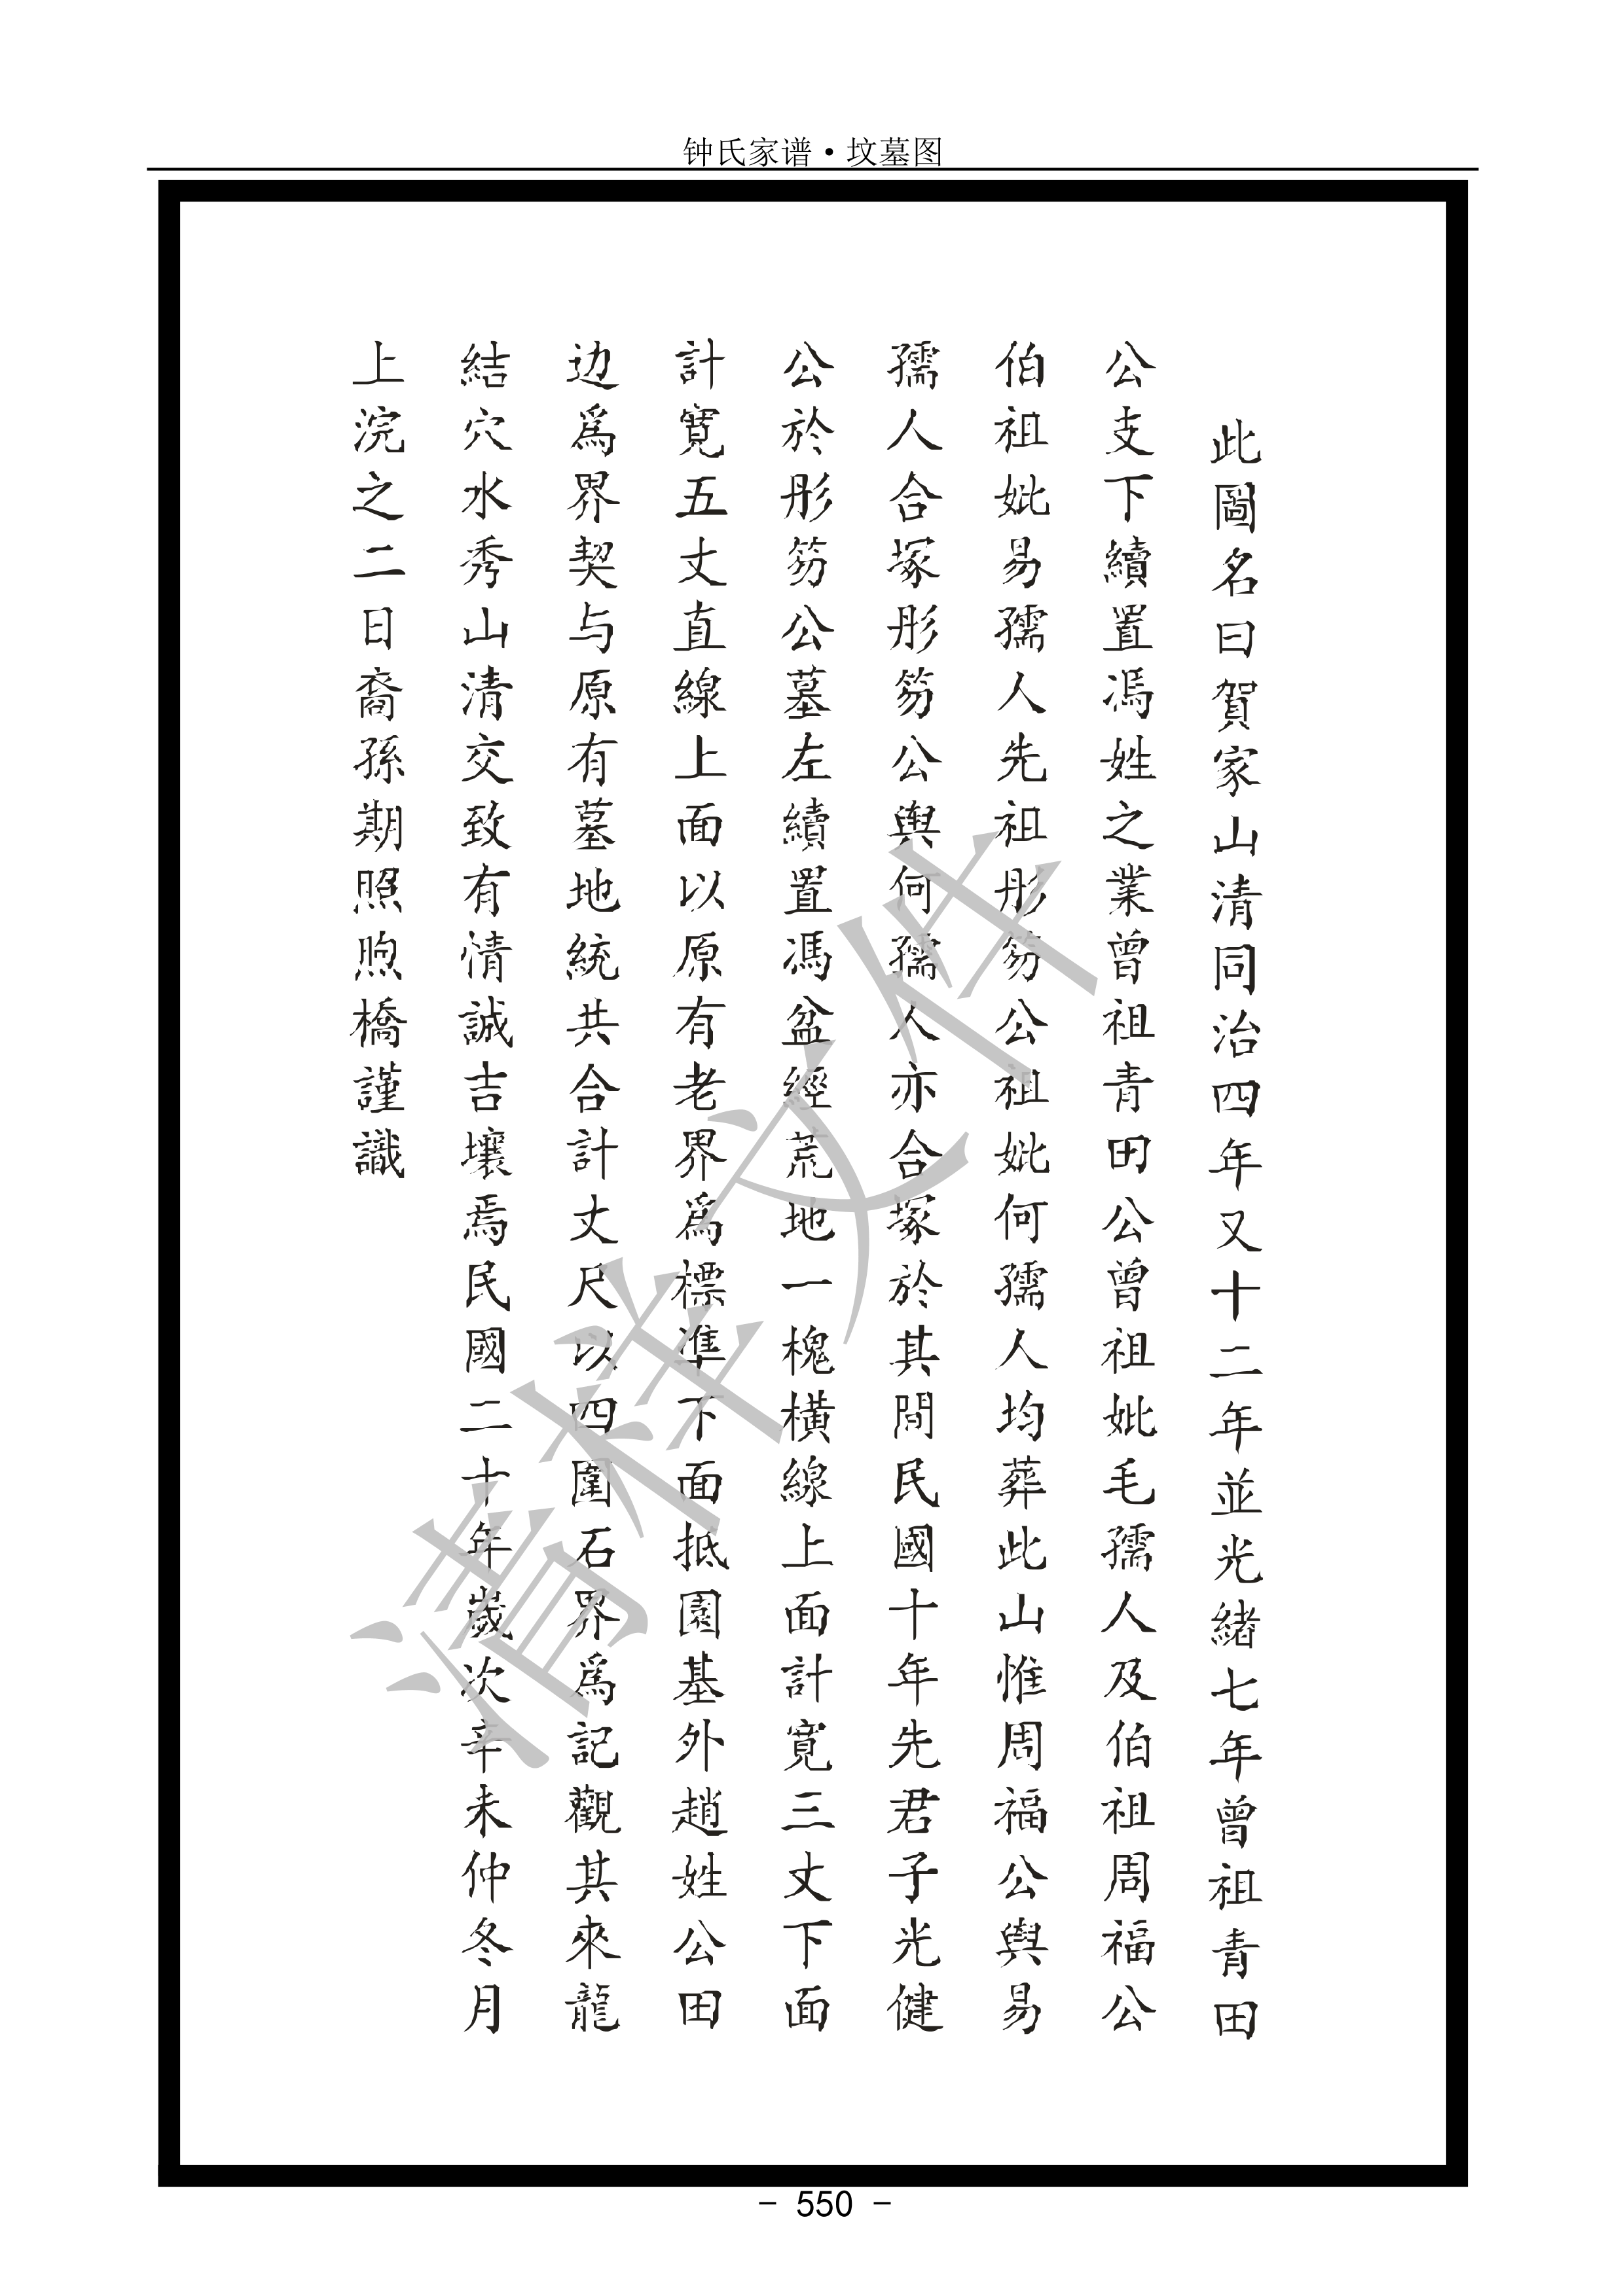 钟氏家谱·坟墓图
此圖名曰賀家山清同治四年又十二年並光緒七年曾祖青田
公支下續置馮姓之業曾祖青田公曾祖妣毛孺人及伯祖周福公
伯祖妣易孺人先祖彤笏公祖妣何孺人均葬此山惟周福公與易
孺人合塚彤笏公與何孺人亦合塚於其間民國十年先君子光健
公於彤笏公墓左續置馮盆經荒地一槐橫線上面計寬三丈下面
計寬五丈直線上面以原有老界爲標準下面抵園基外趙姓公田
边爲界契与原有墓地統共合計丈尺以四圍石界爲記觀其來龍
結穴水秀山清交致有情誠吉壤焉民國二十年歲次辛未仲冬月
上浣之二日裔孫期照煦橋謹識
清样文件
- 550 -